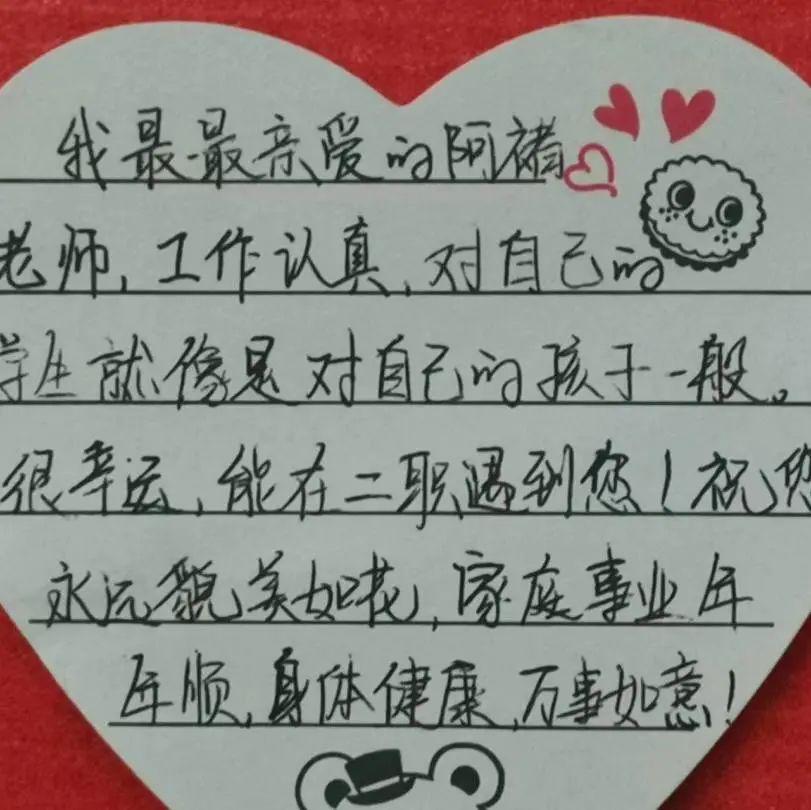 我最最亲爱的阿褚
老师,工作认真,对自己的
学生就像是对自己的孩子一般。
很幸运,能在二职遇到您!祝您
永远貌美如花,家庭事业年
年顺,身体健康,万事如意!